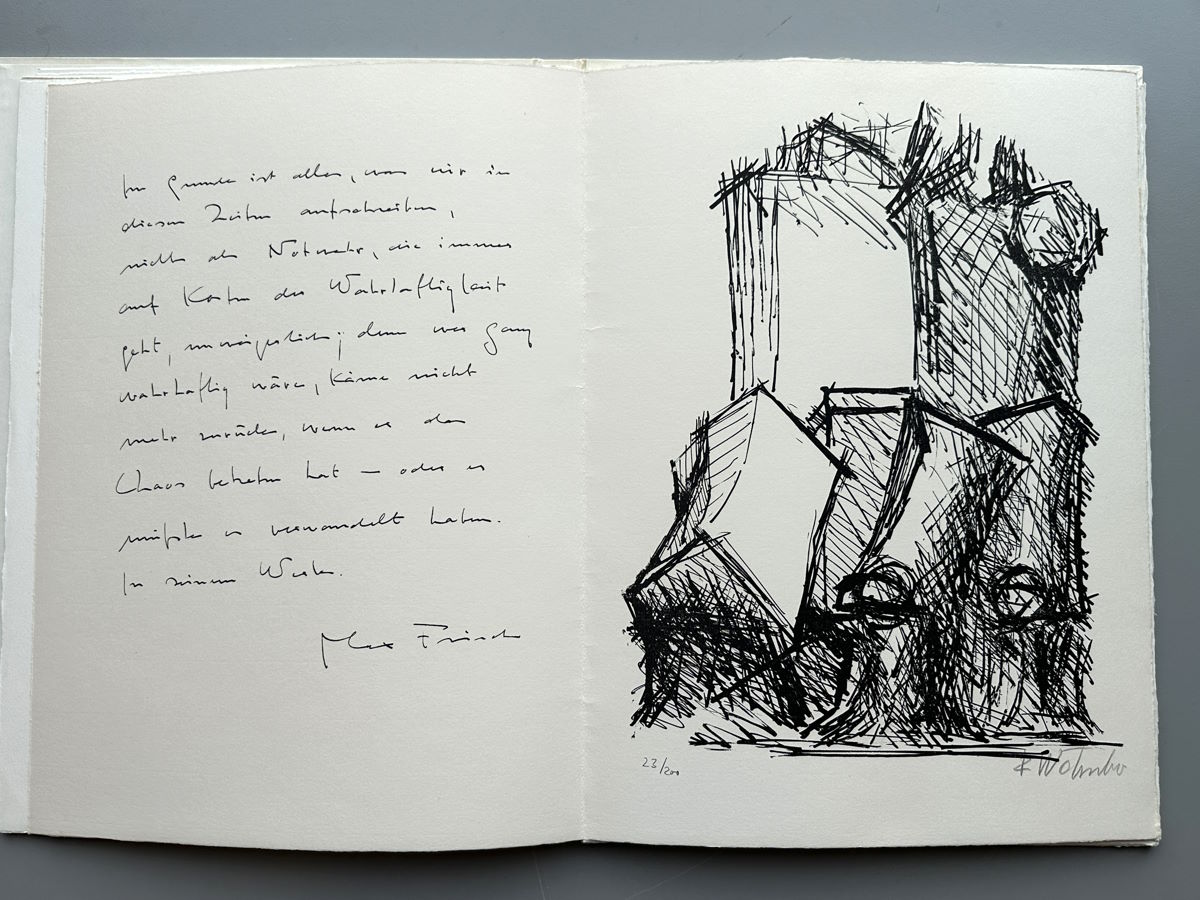 Im Grunde ist alles, was wir in
diesen Zeiten aufschreiben,
nichts als Notwehr, die immer
auf Kosten der Wahrhaftigkeit
geht, unweigerlich; denn wer ganz
wahrhaftig wäre, käme nicht
mehr zurück, wenn er das
Chaos betreten hat — oder er
müsste es verwandelt haben.
In seinem Werke.
Max Frisch
23/200